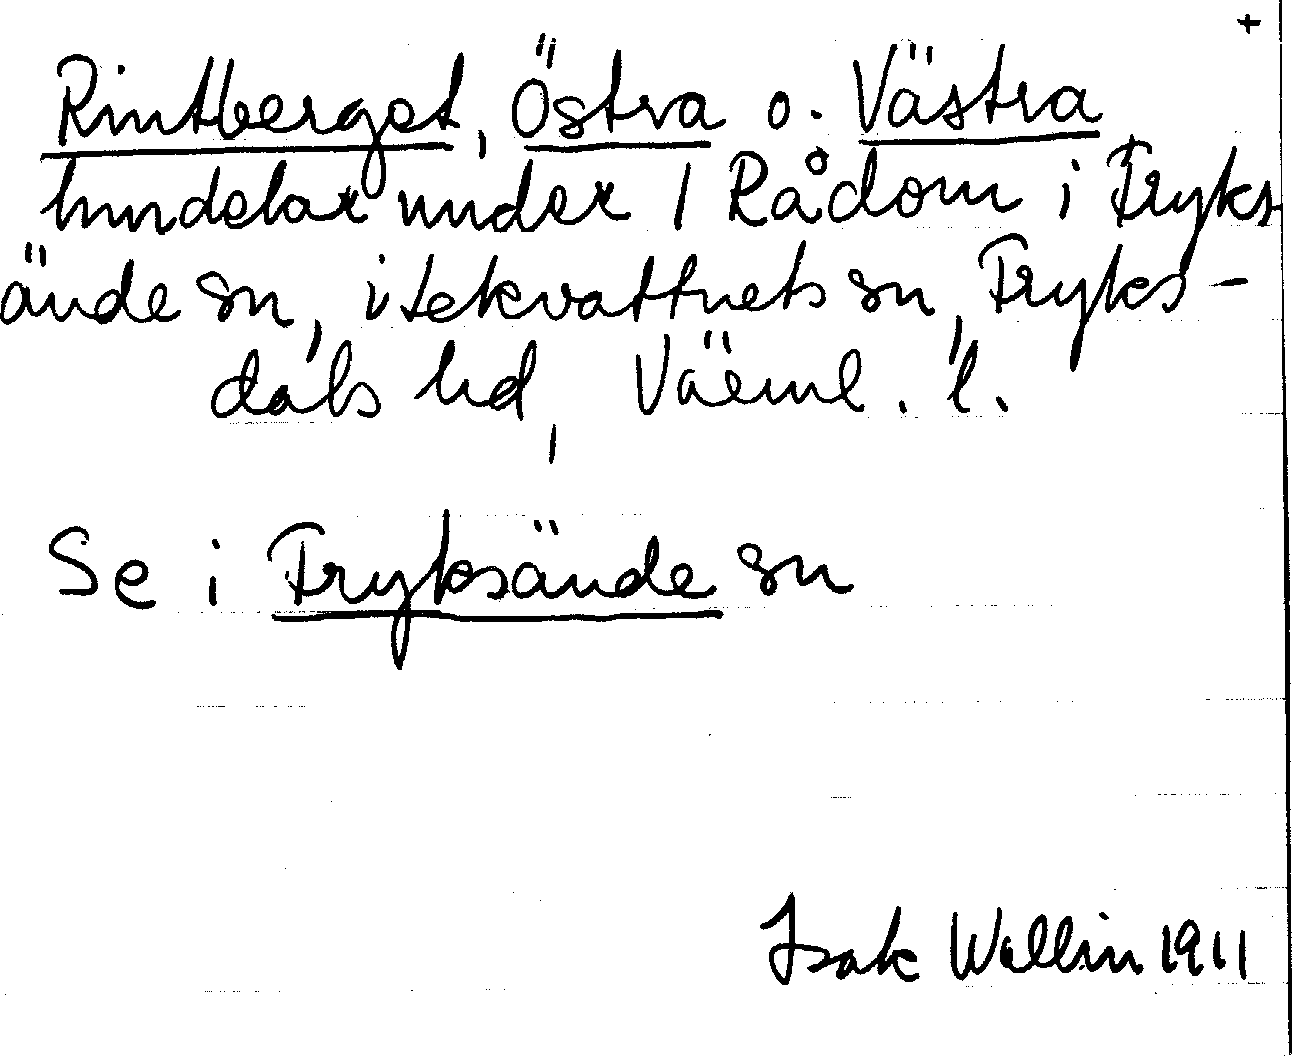 +
Rintberget, Östra o. Västra
hmdelar under 1 Rådom i Fryks
ände sn, Lekvattnets sn, Fryks-
dals hd, Värml. l.
Se i Fryksände sn
Isak Wallin 1911